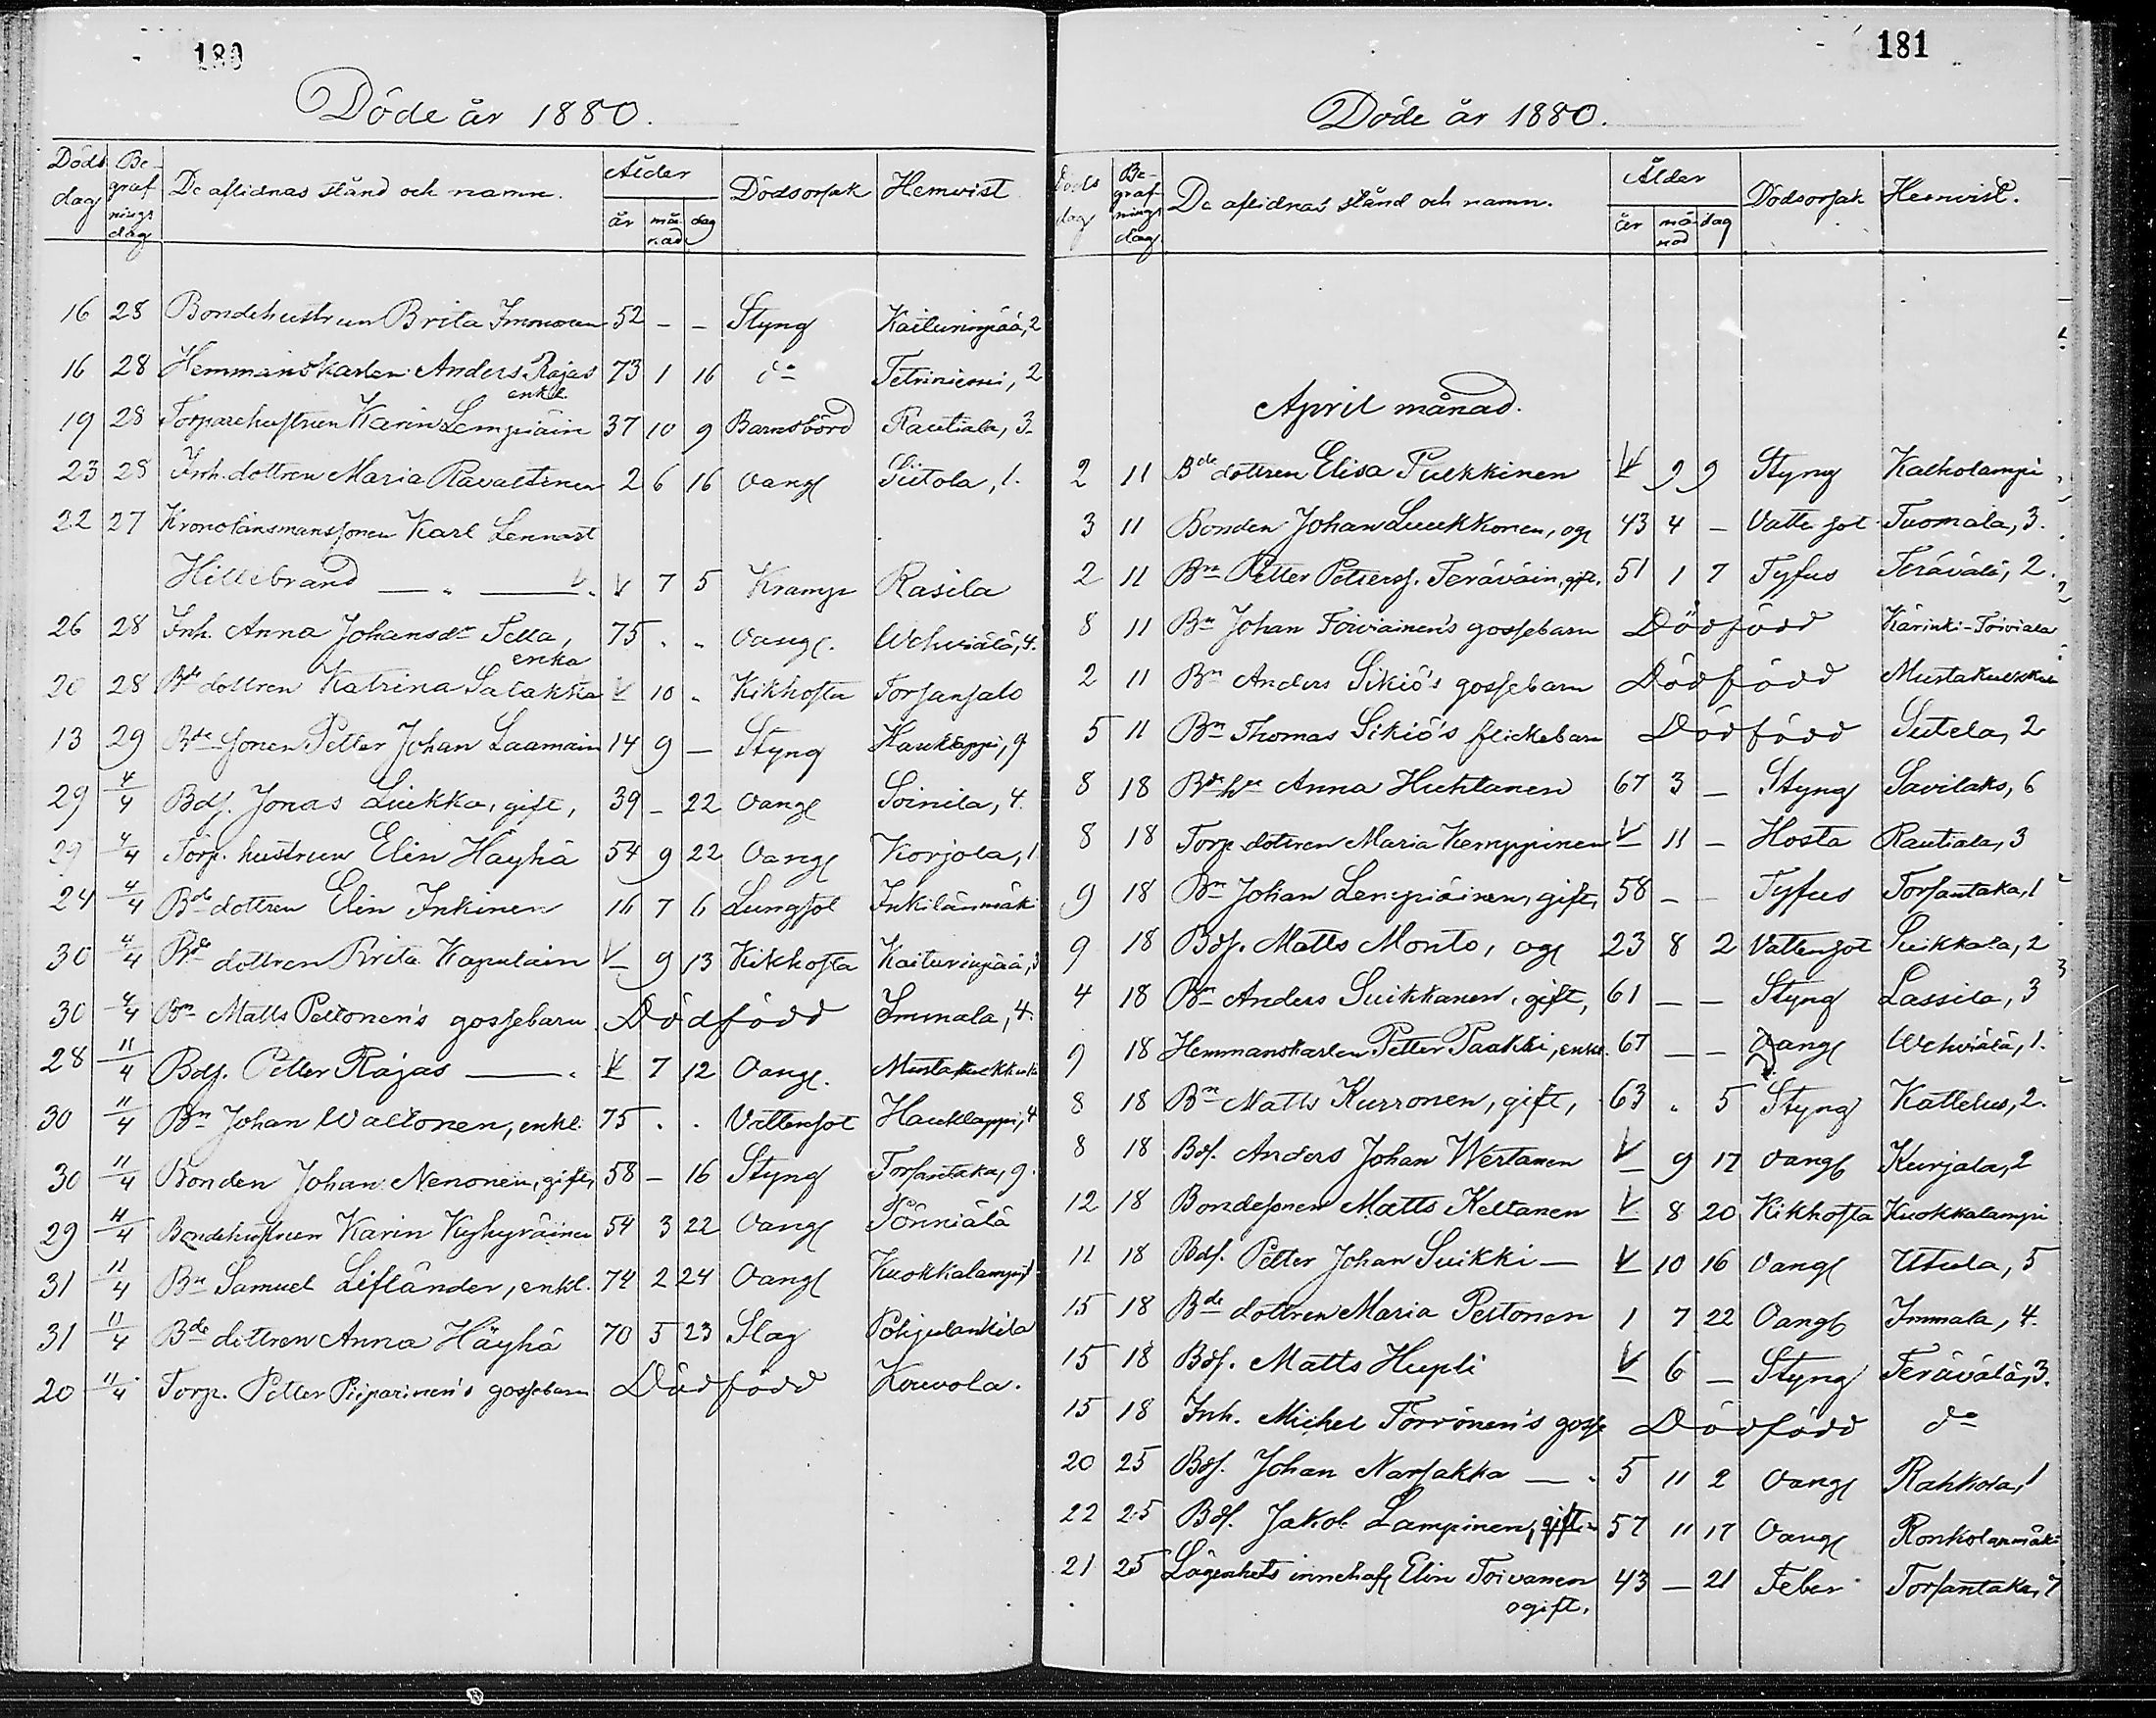 180
Döde år 1880.
Döds dag Begrafnings dag De aflidnas stånd och namn. Ålder år månad dag Dödsorsak Hemvist
16 28 Bondehustrun Brita Immonen 52 - - Styng Kaiturinpää, 2
16 28 Hemmanskarlen Anders Rajas 73 1 16 do Tetriniemi, 2
enkl.
19 28 Torparehustrun Karin Lempiäin 37 10 9 Barnsbörd Rautiala, 3.
23 28 Inh. dottren Maria Ravattinen 2 6 16 Oangf Siitola, 1.
22 27 Kronolänsmanssonen Karl Lennart
Hillebrand — " — V 7 5 Kramp Rasila
26 28 Inh. Anna Johansdr Tella, 75 . . Oangf. Wehviälä, 4.
enka
20 28 Bde dottren Katrina Satakka V 10 . Kikhosta Torsansalo
13 29 Bde sonen Petter Johan Laamain 14 9 — Styng Hauklappi, 9
29 4/4 Bdf. Jonas Liukka, gift, 39 - 22 Oangf Soinila, 4.
29 4/4 Torp. hustrun Elin Häyhä 54 9 22 Oangf Korjola, 1
24 4/4 Bde dottren Elin Inkinen 16 7 6 Lungsot Inkilänmäki
30 4/4 Bde dottren Brita Kapulain V 9 13 Kikhosta Kaiturinpää, 3
30 4/4 Bn Matts Peltonen's gossebarn Dödfödd Immala, 4.
28 11/4 Bdf. Petter Rajas — V 7 12 Oangf. Mustakukkula
30 11/4 Bn Johan Waltonen, enkl. 75 . . Vattensot Hauklappi, 4
30 11/4 Bonden Johan Nenonen, gift, 58 - 16 Styng Torsantaka, 9.
29 11/4 Bondehustrun Karin Kyhyräinen 54 3 22 Oangf Pönniälä
31 11/4 Bn Samuel Lifländer, enkl. 74 2 24 Oangf Kuokkalampi
31 11/4 Bde dottren Anna Häyhä 70 5 23 Slag Pohjulankila
20 11/4 Torp. Petter Piiparinen's gossebarn Dödfödd Kouvola.
181
Döde år 1880.
Döds dag Begrafnings dag De aflidnas stånd och namn. Ålder år månad dag Dödsorsak Hemvist.
April månad.
2 11 Bde dottren Elisa Pulkkinen V 9 9 Styng Kalkolampi
3 11 Bonden Johan Luukkonen, og 43 4 — Vatte sot Tuomala, 3.
2 11 Bn Petter Petersf. Teräväin, gft. 51 1 7 Tyfus Terävälä, 2.
8 11 Bn Johan Toiviainen's gossebarn Dödfödd Kärinki-Toiviala
2 11 Bn Anders Sikiö's gossebarn Dödfödd Mustakukkula
5 11 Bn Thomas Sikiö's flickebarn Dödfödd Sutela, 2
8 18 Bdehn Anna Huhtanen 67 3 — Styng Savilaks, 6
8 18 Torp. dottren Maria Kemppinen V 11 — Hosta Rautiala, 3
9 18 Bn Johan Lempiäinen, gift, 58 — — Tyfus Torsantaka, 1
9 18 Bdf. Matts Monto, og 23 8 2 Vattensot Suikkala, 2
4 18 Bn Anders Suikkanen, gift, 61 — — Styng Lassila, 3
9 18 Hemmanskarlen Petter Paakki, enkl. 67 — — Oangf Wehviälä, 1.
8 18 Bn Matts Kurronen, gift, 63 . 5 Styng Kattelus, 2.
8 18 Bdf. Anders Johan Wertanen V 9 17 Oangf Kurjala, 2
12 18 Bondesonen Matts Keltanen V 8 20 Kikhosta Kuokkalampi
11 18 Bdf. Petter Johan Suikki — V 10 16 Oangf Utula, 5
15 18 Bde dottren Maria Peltonen 1 7 22 Oangf Immala, 4.
15 18 Bdf. Matts Hupli V 6 — Styng Terävälä, 3.
15 18 Inh. Michel Torvönen's gosse Dödfödd do
20 25 Bdf. Johan Narsakka — . 5 11 2 Oangf Rahkola, 1
22 25 Bdf. Jakob Lampinen, gift. 57 11 17 Oangf Ronkolanmäki
21 25 Lägenhets innehaf. Elin Toivanen 43 — 21 Feber Torsantaka, 7
ogift.